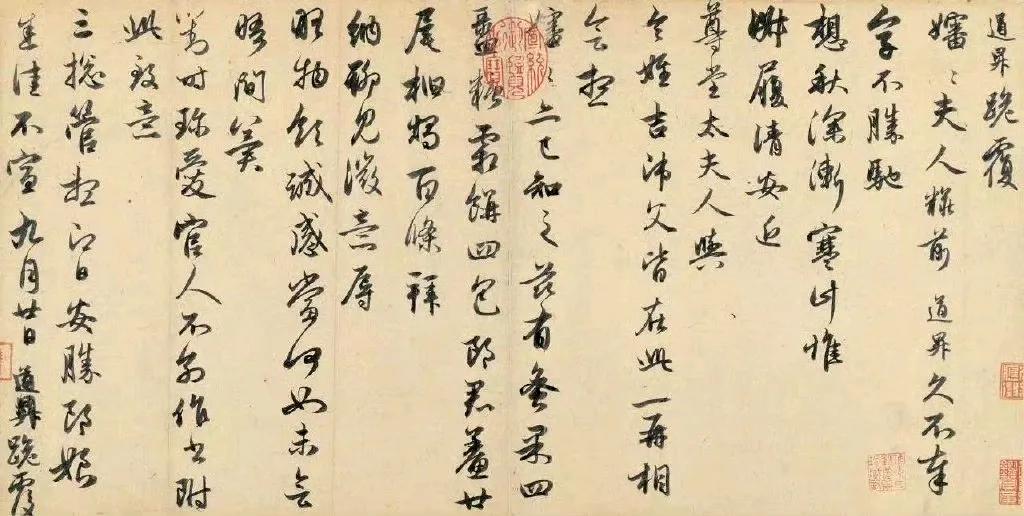 道昇跪覆
嬸〻夫人糚前道昇久不奉
字不勝馳
想秋深漸寒計惟
淑履清安近
尊堂太夫人與
令姪吉師父皆在此一再相
會想
嬸〻亦已知之茲有蜜果四
盝糖霜餅四包郎君鯗廿
尾桕燭百條拜
納聊見微意辱
物領誠感當何如未會
晤間冀
對時珍愛官人不别作書附
此致意
三總管想即日安勝郎娘
悉佳不宣九月廿日道昇跪覆